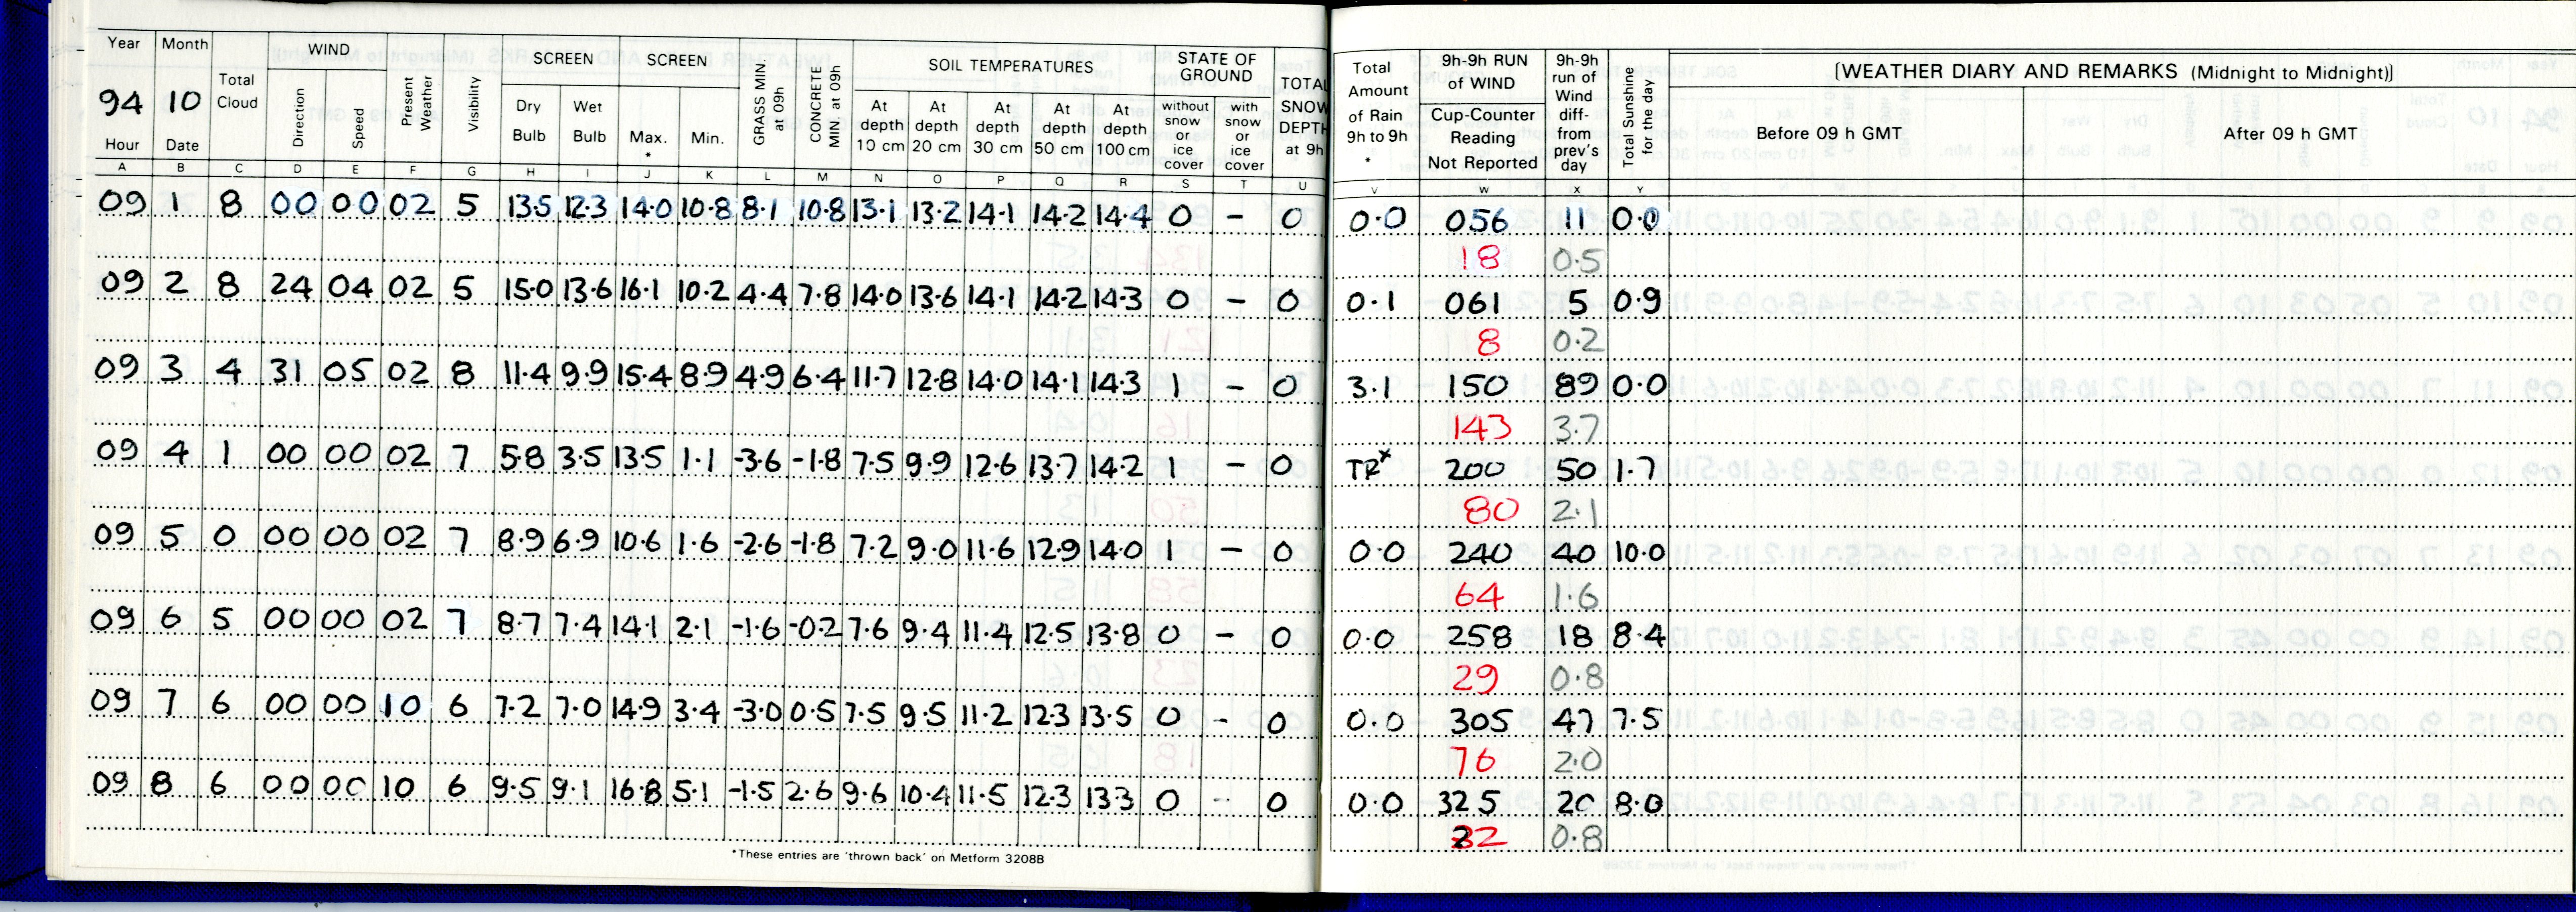 Year Month WIND SCREEN SCREEN SOIL TEMPERATURES STATE OF GROUND
94 10 Total Cloud Direction Speed Present Weather Visibility Dry Bulb Wet Bulb Max. * Min. GRASS MIN at 09h CONCRETE MIN at 09h At depth 10 cm At depth 20 cm At depth 30 cm At depth 50 cm At depth 100 cm without snow or ice cover with snow or ice cover TOTAL SNOW DEPTH at 9h
Hour Date
A B C D E F G H I J K L M N O P Q R S T U
09 1 8 00 00 02 5 13.5 12.3 14.0 10.8 8.1 10.8 13.1 13.2 14.1 14.2 14.4 0 - 0
09 2 8 24 04 02 5 15.0 13.6 16.1 10.2 4.4 7.8 14.0 13.6 14.1 14.2 14.3 0 - 0
09 3 4 31 05 02 8 11.4 9.9 15.4 8.9 4.9 6.4 11.7 12.8 14.0 14.1 14.3 1 - 0
09 4 1 00 00 02 7 5.8 3.5 13.5 1.1 -3.6 -1.8 7.5 9.9 12.6 13.7 14.2 1 - 0
09 5 0 00 00 02 7 8.9 6.9 10.6 1.6 -2.6 -1.8 7.2 9.0 11.6 12.9 14.0 1 - 0
09 6 5 00 00 02 7 8.7 7.4 14.1 2.1 -1.6 -0.2 7.6 9.4 11.4 12.5 13.8 0 - 0
09 7 6 00 00 10 6 7.2 7.0 14.9 3.4 -3.0 0.5 7.5 9.5 11.2 12.3 13.5 0 - 0
09 8 6 00 00 10 6 9.5 9.1 16.8 5.1 -1.5 2.6 9.6 10.4 11.5 12.3 13.3 0 - 0
*These entries are 'thrown back' on Metform 3208B
Total Amount of Rain 9h to 9h * 9h-9h RUN of WIND Cup-Counter Reading Not Reported 9h-9h run of Wind diff- from prev's day Total Sunshine for the day [WEATHER DIARY AND REMARKS (Midnight to Midnight)]
Before 09 h GMT After 09 h GMT
V W X Y
0.0 056 11 0.0
18 0.5
0.1 061 5 0.9
8 0.2
3.1 150 89 0.0
143 3.7
TRx 200 50 1.7
80 2.1
0.0 240 40 10.0
64 1.6
0.0 258 18 8.4
29 0.8
0.0 305 47 7.5
76 2.0
0.0 325 20 8.0
32 0.8